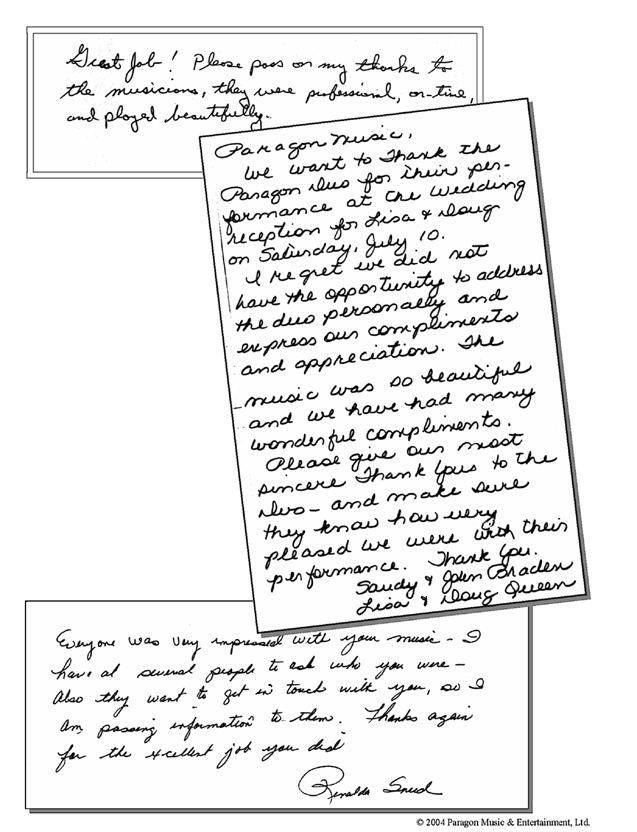 Great Job! Please pass on my thanks to
the musicians, they were professional, on-time,
and played beautifully.
Paragon Music,
We want to Thank the
Paragon Duo for their per-
formance at the wedding
reception for Lisa & Doug
on Saturday, July 10.
I regret we did not
have the opportunity to address
the duo personally and
express our compliments
and appreciation. The
music was so beautiful
and we have had many
wonderful compliments.
Please give our most
sincere Thank Yous to the
Duo - and make sure
they know how very
pleased we were with their
performance. Thank You.
Sandy & John Braden
Lisa & Doug Queen
Everyone was very impressed with your music - I
have at several people to ask who you were -
Also they want to get in touch with you, so I
am passing information to them. Thanks again
for the excellent job you did
Renalda Sneed
© 2004 Paragon Music & Entertainment, Ltd.